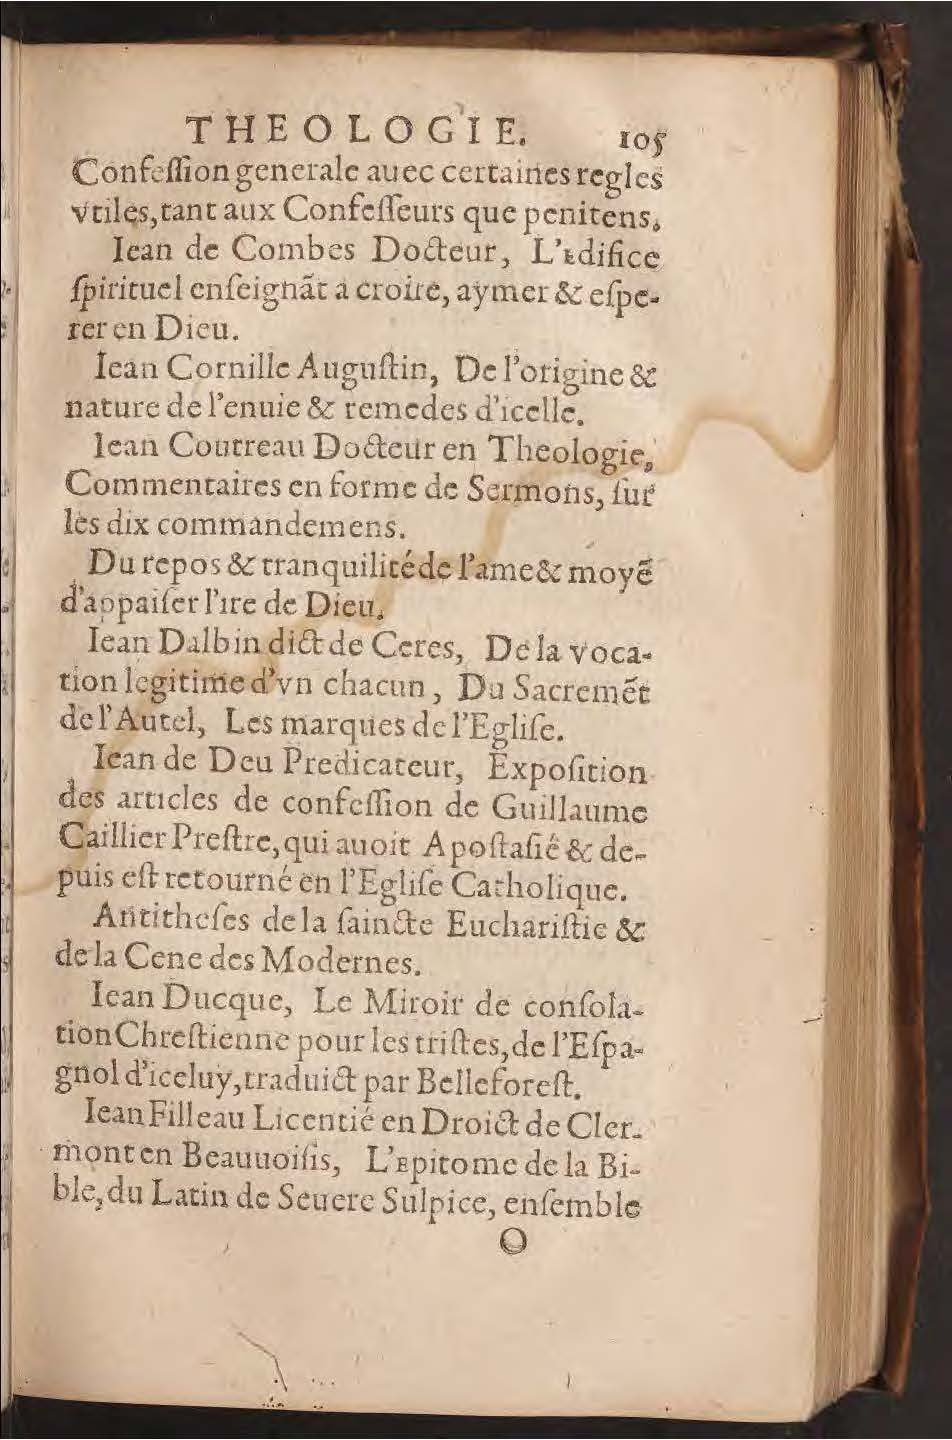 THEOLOGIE. 105
Confeſſion generale auec certaines regles
vtiles, tant aux Confeſſeurs que penitens.
Iean de Combes Docteur, L'Edifice
ſpirituel enſeignãt a croire, aymer & eſpe-
rer en Dieu.
Iean Cornille Auguſtin, De l'origine &
nature de l'enuie & remedes d'icelle.
Iean Coutreau Docteur en Theologie,
Commentaires en forme de Sermons, ſur
les dix commandemens.
Du repos & tranquilité de l'ame & moyẽ
d'appaiſer l'ire de Dieu.
Iean Dalbin dict de Ceres, De la voca-
tion legitime d'vn chacun, Du Sacremẽt
de l'Autel, Les marques de l'Egliſe.
Iean de Deu Predicateur, Expoſition
des articles de confeſſion de Guillaume
Caillier Preſtre, qui auoit Apoſtaſié & de-
puis eſt retourné en l'Egliſe Catholique.
Antitheſes de la ſaincte Euchariſtie &
de la Cene des Modernes.
Iean Ducque, Le Miroir de conſola-
tion Chreſtienne pour les triſtes, de l'Eſpa-
gnol d'iceluy, traduict par Belleforeſt.
Iean Filleau Licentié en Droict de Cler-
mont en Beauuoiſis, L'Epitome de la Bi-
ble, du Latin de Seuere Sulpice, enſemble
O